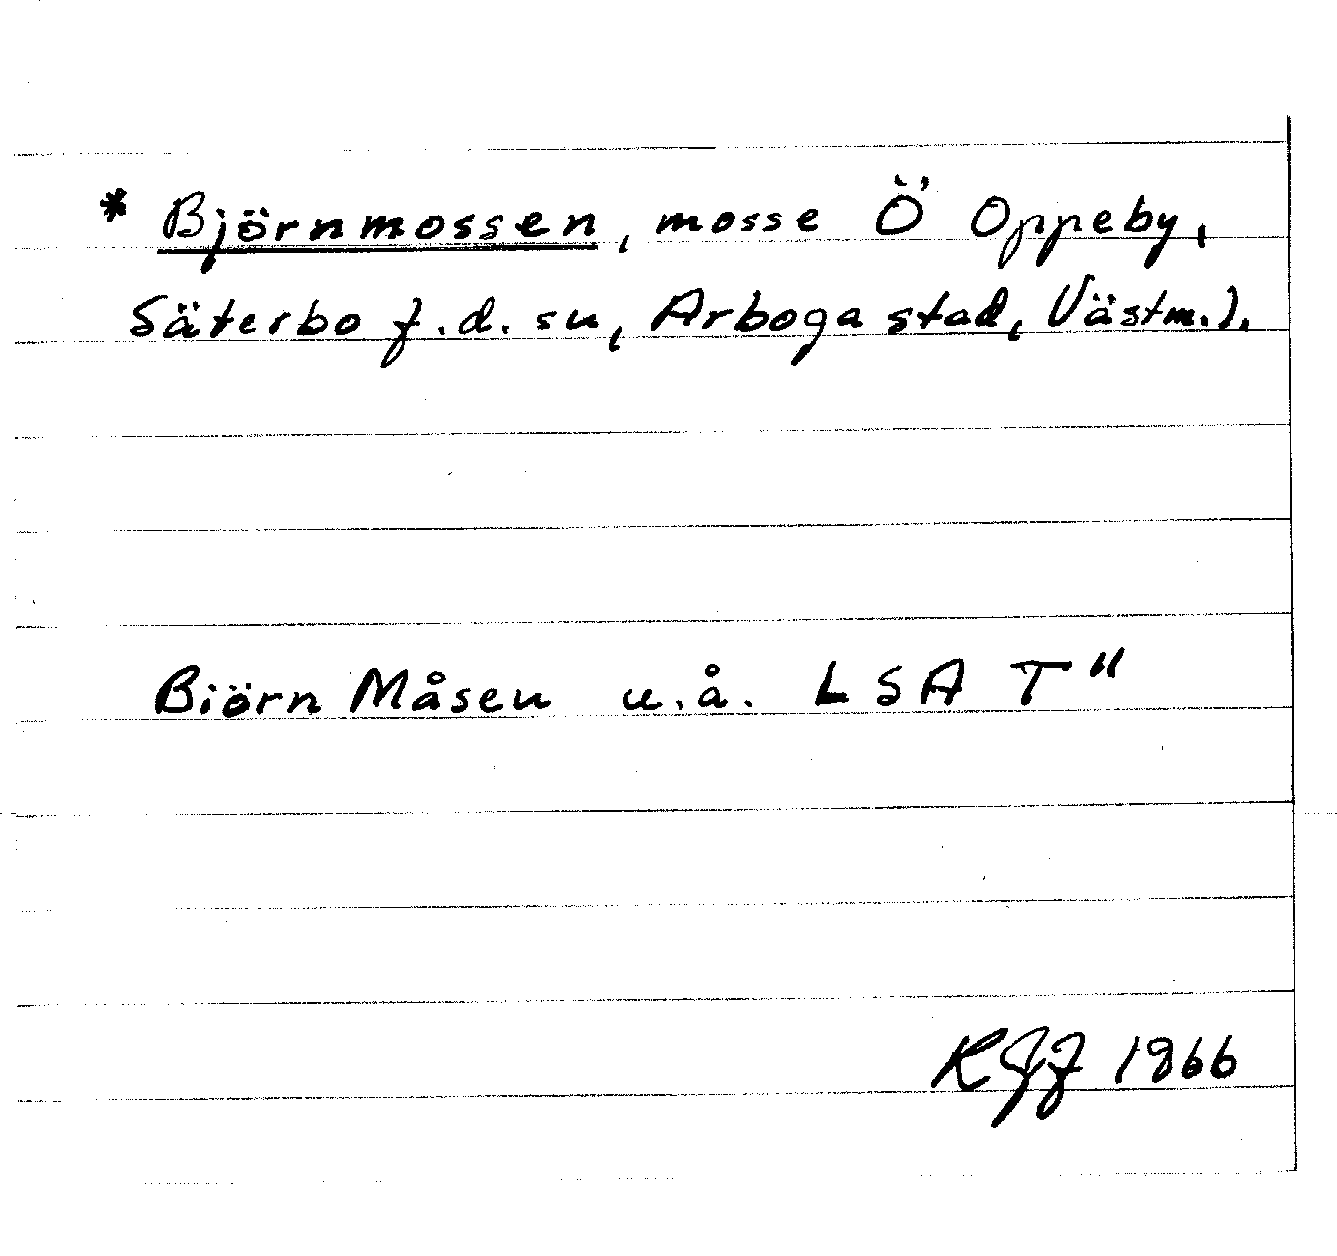 * Björnmossen, mosse Ö Oppeby,
Säterbo f.d. sn, Arboga stad, Västm. l.
Biörn Måsen u.å. LSA T"
1966